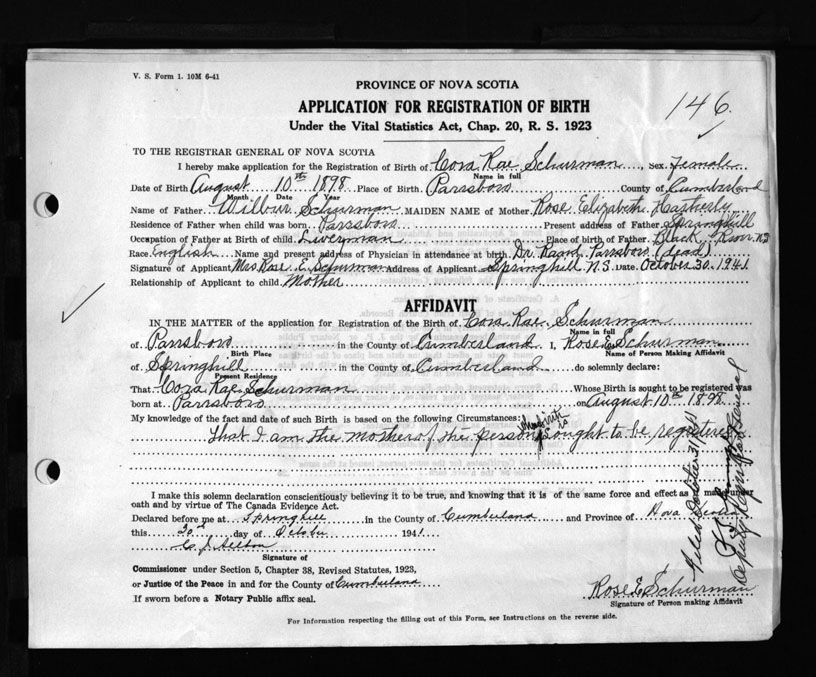 V. S. Form 1. 10M 6-41
PROVINCE OF NOVA SCOTIA
146.
APPLICATION FOR REGISTRATION OF BIRTH
Under the Vital Statistics Act, Chap. 20, R. S. 1923
TO THE REGISTRAR GENERAL OF NOVA SCOTIA
I hereby make application for the Registration of Birth of Cora Rae Schurman, Sex female
Name in full
Date of Birth August 10th 1898 Place of Birth Parrsboro County of Cumberland
Month Date Year
Name of Father Wilbur Schurman MAIDEN NAME of Mother Rose Elizabeth Hatherly
Residence of Father when child was born Parrsboro Present address of Father Springhill
Occupation of Father at Birth of child Liveryman Place of birth of Father Black River N.S
Race English Name and present address of Physician in attendance at birth Dr. Rand Parrsboro (dead)
Signature of Applicant Mrs Rose E. Schurman Address of Applicant Springhill N.S. Date October 30 1941
Relationship of Applicant to child Mother
AFFIDAVIT
IN THE MATTER of the application for Registration of the Birth of Cora Rae Schurman
Name in full
of Parrsboro in the County of Cumberland I, Rose E Schurman
Birth Place Name of Person Making Affidavit
of Springhill in the County of Cumberland do solemnly declare:
Present Residence
That Cora Rae Schurman Whose Birth is sought to be registered was
born at Parrsboro on August 10th 1898
My knowledge of the fact and date of such Birth is based on the following Circumstances:
whose birth is
That I am the mother of the person sought to be registered
I make this solemn declaration conscientiously believing it to be true, and knowing that it is of the same force and effect as if made under
oath and by virtue of The Canada Evidence Act.
Declared before me at Springhill in the County of Cumberland and Province of Nova Scotia
this day of October 1941
Signature of
Commissioner under Section 5, Chapter 38, Revised Statutes, 1923,
or Justice of the Peace in and for the County of Cumberland
If sworn before a Notary Public affix seal.
Rose E Schurman
Signature of Person making Affidavit
For Information respecting the filling out of this Form, see Instructions on the reverse side.
Filed October 31
Deputy Registrar General